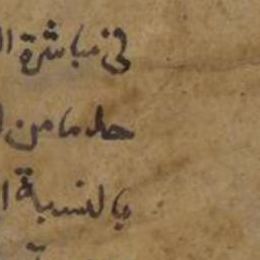 في مباشرة ا
حد ما من ا
بالنسبة ا